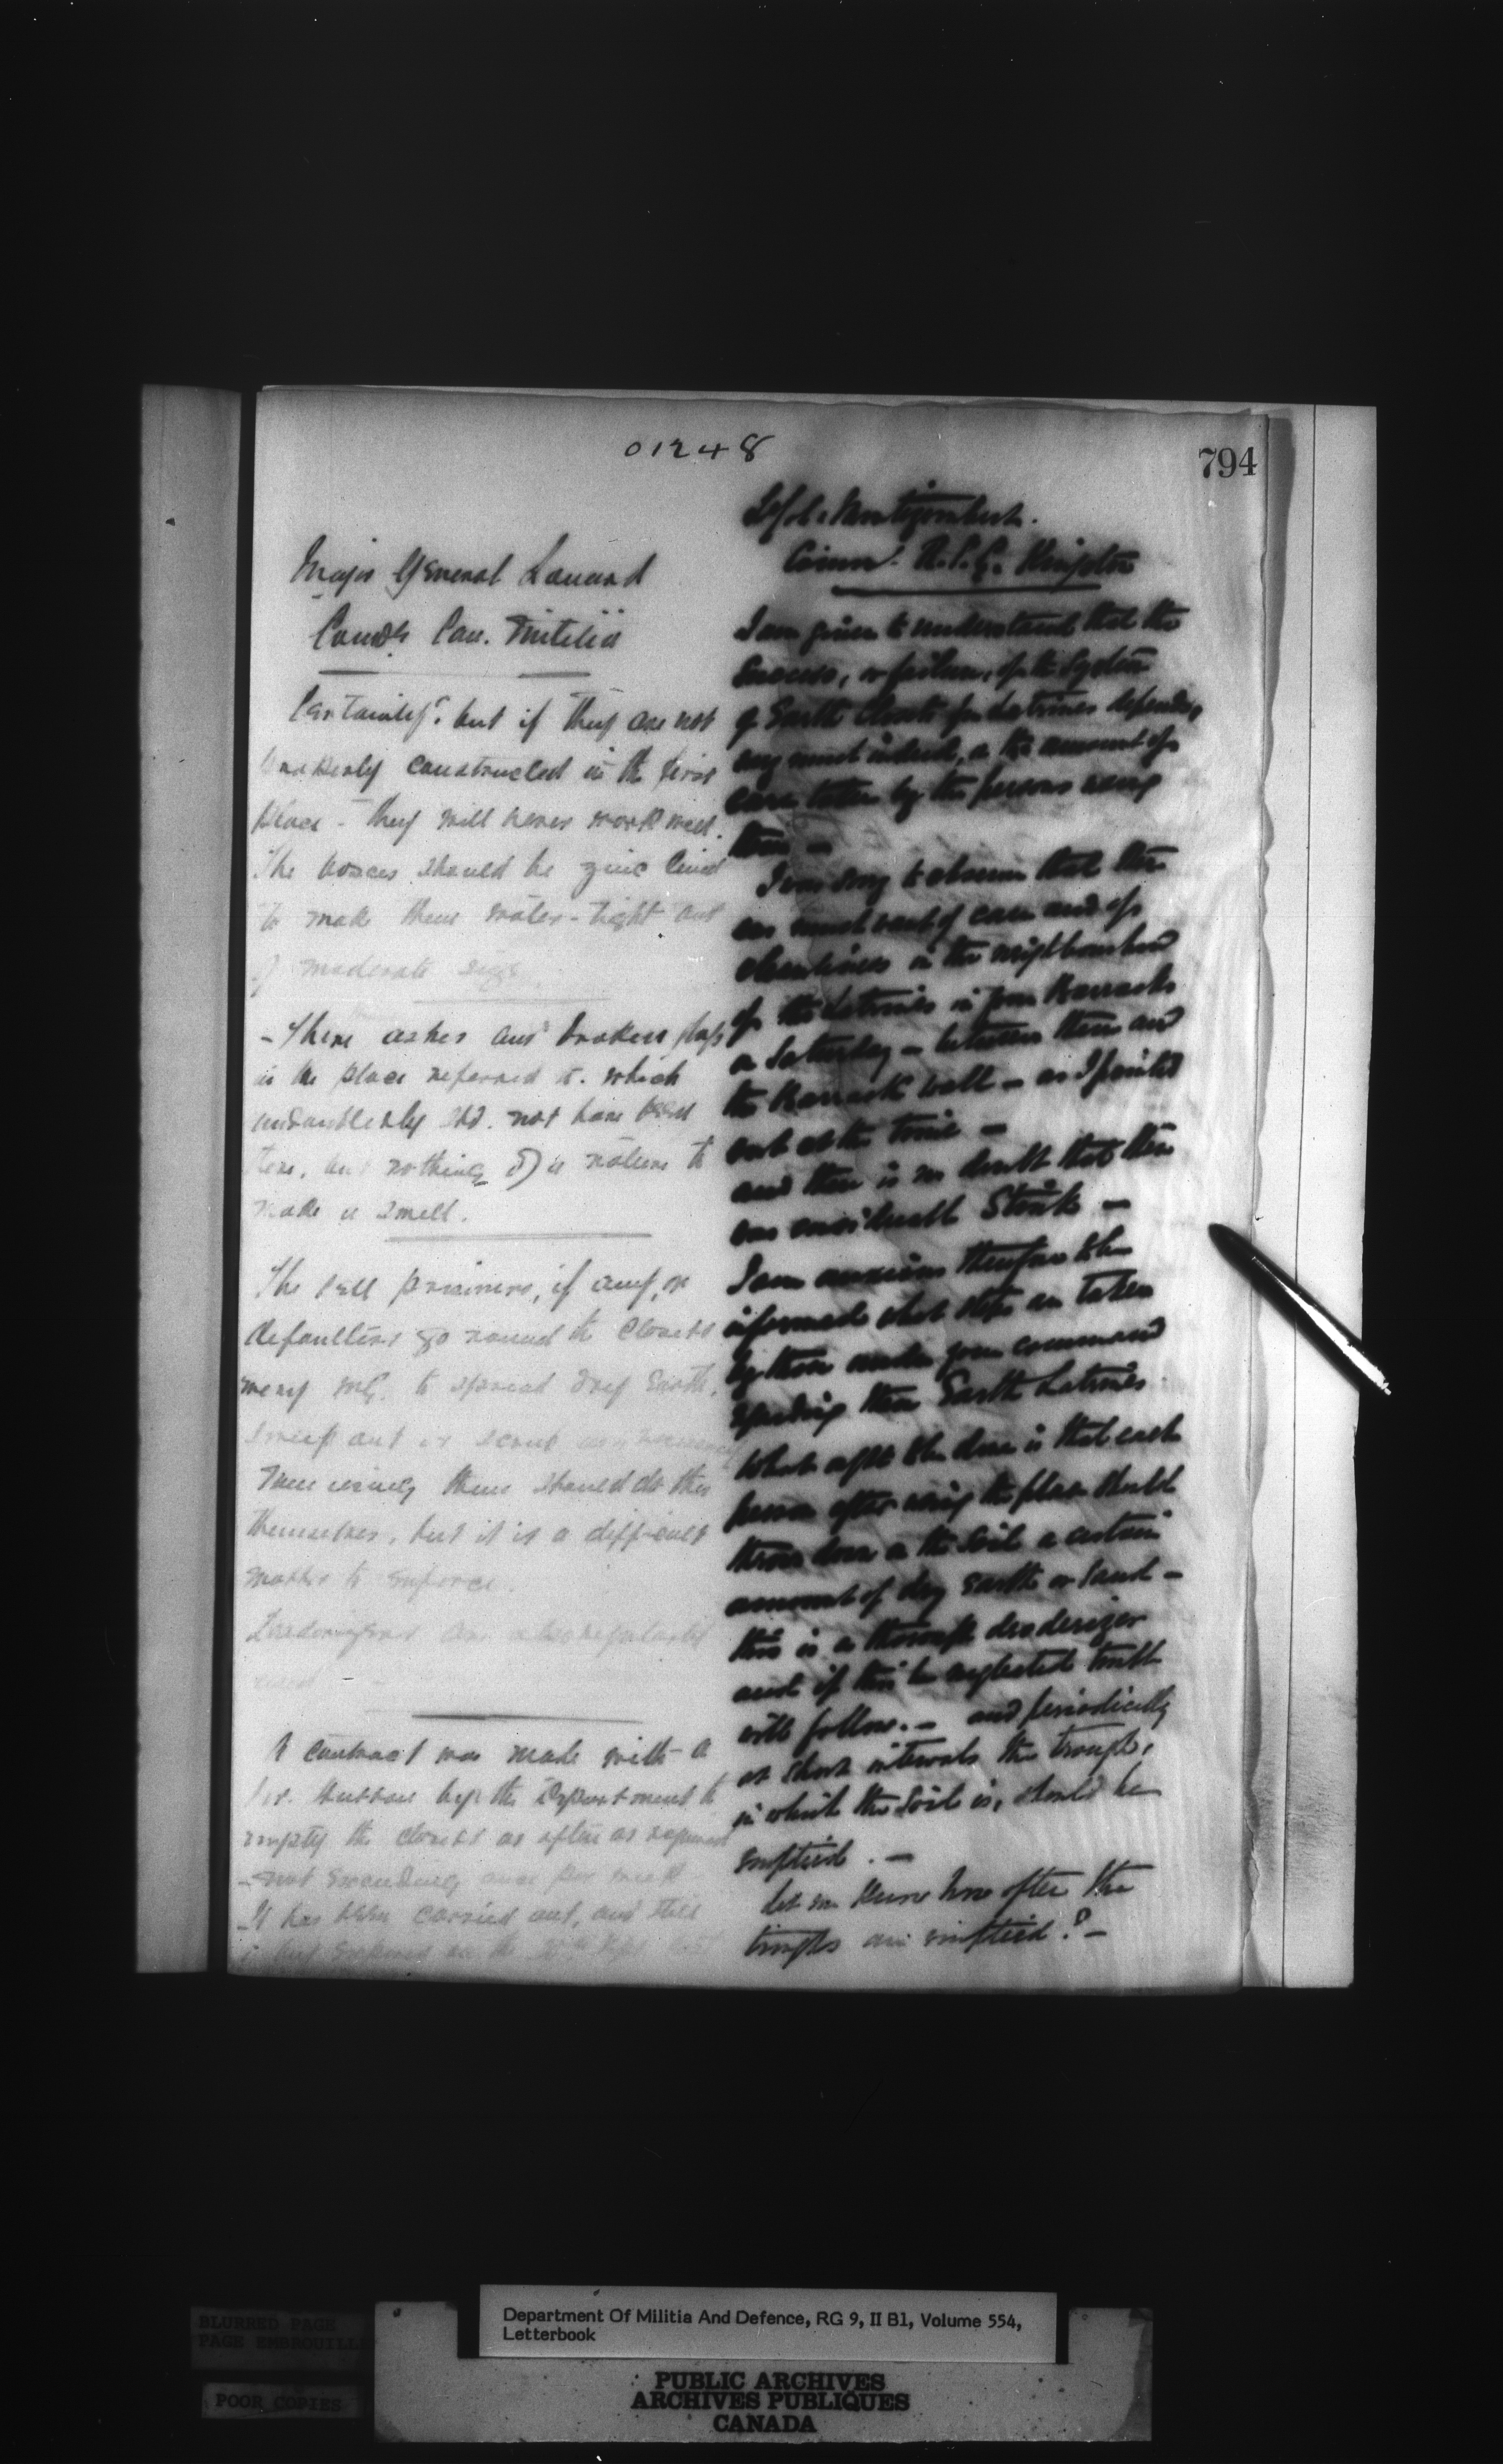 01248
794
Major General
Can. Militia
Certainly. but if they are not
properly constructed in the first
place - they will never work well.
The boxes should be zinc lined
to make them water-tight and
of moderate size
- There ashes and broken glass
in the place referred to. which
undoubtedly shd. not have been
there, but nothing of a nature to
make a smell.
The prisoners, if any, or
defaulters go round the closets
every mg. to spread dry earth,
sweep out or scour
Men using them should do this
themselves, but it is a difficult
matter to enforce.
are also regularly
used
A contract was made with a
by the Department to
empty the closets as often as required
- not exceeding once per week
It has been carried out, and still
Lt Col. Montizambert.
Comm.
I am given to understand that the
success, or failure, of the system
of Earth Closets for Latrines depends,
very much indeed, on the amount of
care taken by the persons using
them -
I was sorry to observe that there
was much want of care and of
cleanliness in the neighbourhood
of the Latrines in your Barracks
on Saturday - between them and
the Barrack wall - as I pointed
out at the time -
and there is no doubt that there
was considerable Stink -
I am anxious therefore to be
informed what steps are taken
by those under your command
regarding these Earth Latrines
What ought to be done is that each
person after using the place should
throw down on the soil a certain
amount of dry earth or sand -
this is a thorough deoderizer
and if this be neglected trouble
will follow. - and periodically
at short intervals the troughs,
in which the soil is, should be
emptied . -
Let me know how often the
troughs are emptied ? -
Department Of Militia And Defence, RG 9, II B1, Volume 554,
Letterbook
BLURRED PAGE
PAGE EMBROUILLÉE
POOR COPIES
PUBLIC ARCHIVES
ARCHIVES PUBLIQUES
CANADA